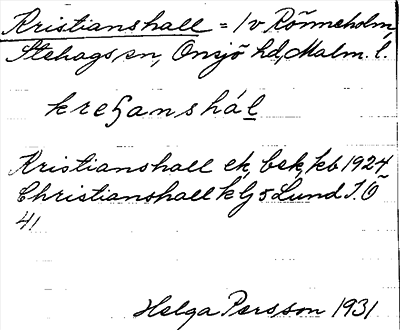 Kristianshall = lv Rönneholm,
Stehags sn, Onsjö hd, Malm. l.
kreʃanshál
Kristianshall ek, bsk, kb 1924
Christianshall klj 5 Lund I.Ö
41
Helga Persson 1931